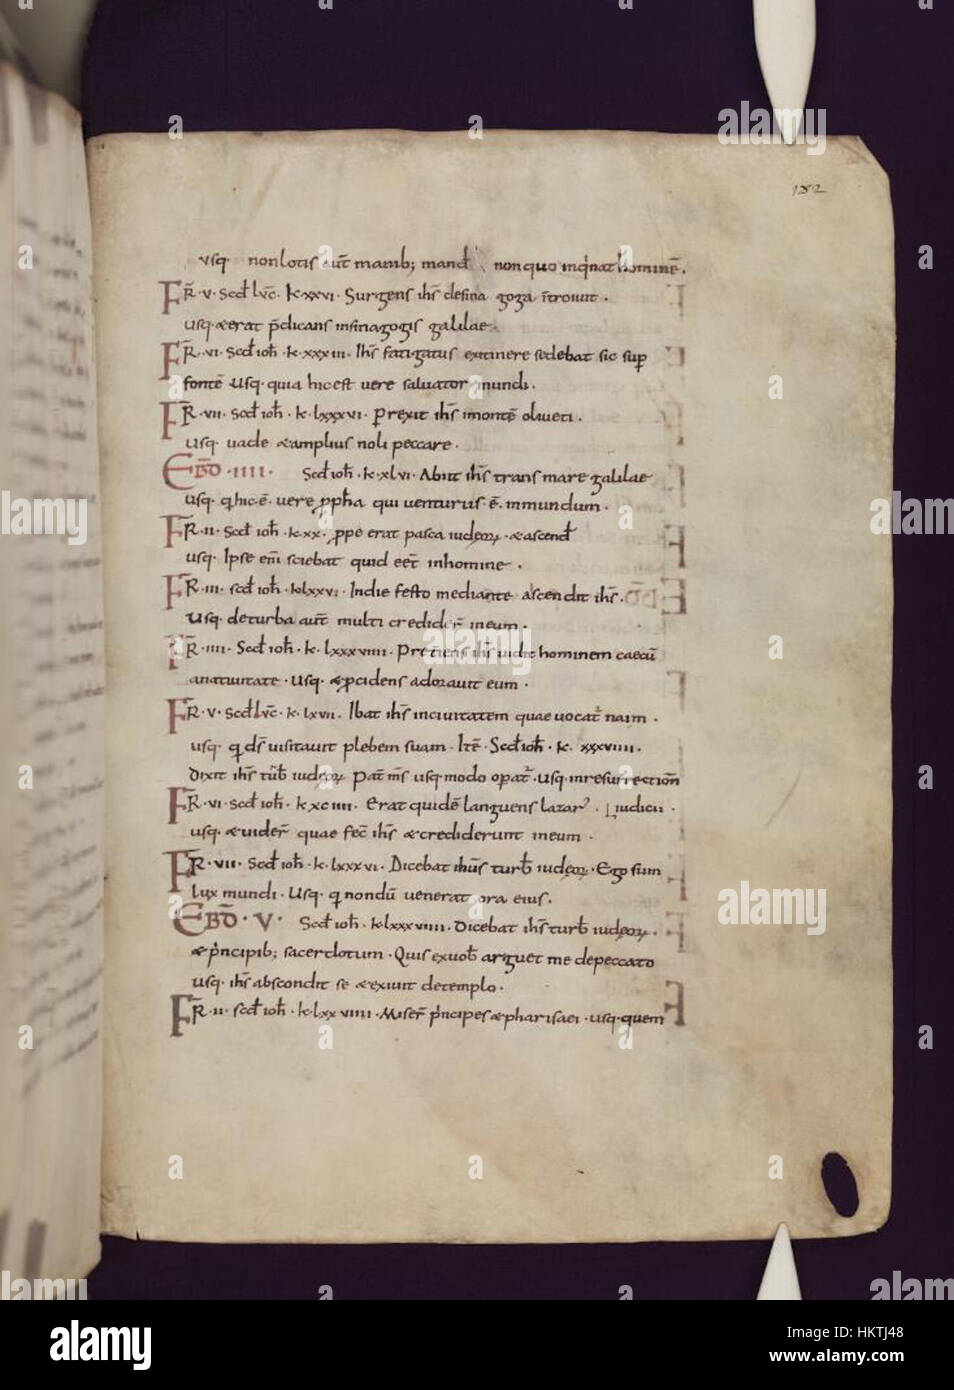 182
usq· non lotis aut̄ manib; mand non quo inq̇inat hominē.
FR̄·V· Scd̄ Lūc· k·xxvi· Surgens ih̄s de sina goga ītroiuit·
usq· & erat p̄dicans in sinagogis galilae·
FR̄·VI· Scd̄ ioh̄· k·xxxiii· Ih̄s fatigatus ex itinere sedebat sic sup
fontē usq· quia hic est vere saluator mundi·
FR̄·VII· Scd̄ ioh̄· k·lxxxvi· Prexit ih̄s imontē oliueti·
usq· uade & amplius noli peccare·
EBD̄·IIII· Scd̄ ioh̄· k·xlvi· Abiit ih̄s trans mare galilae
usq· q hic·ē· vere p̱pha qui uenturus·ē· in mundum·
FR̄·II· Scd̄ ioh̄· k·xx· p̱pe erat pasca iudeoꝝ· & ascend̄
usq· Ipse enī sciebat quid eēt in homine·
FR̄·III· scd̄ ioh̄· k·lxxvi· In die festo mediante ascendit ih̄s·
usq· de turba aut̄ multi credider̄ in eum·
FR̄·IIII· Scd̄ ioh̄· k·lxxxviiii· Preties ih̄s uidit hominem caecū
a natiuitate· usq· & pcidens adorauit eum·
FR̄·V· Scd̄ Lūc· k·lxvii· Ibat ih̄s in ciuitatem quae uocat naim·
usq· q d̄s uisitauit plebem suam· Itē· Scd̄ ioh̄· k· xxxviiii·
Dixit ih̄s turb̄ iudeoꝝ Pat̄ m̄s usq: modo opat· usq· in resurrection̄
FR̄·VI· Scd̄ ioh̄· k·xciiii· Erat quidē languens lazar·
usq· & uider̄ quae fec̄ ih̄s & crediderunt in eum·
FR̄·VII· Scd̄ ioh̄· k·lxxxvi· Dicebat ihūs turb̄ iudeoꝝ· Ego sum
lux mundi· usq· q nondū uenerat ora eius·
EBD̄·V· Scd̄ ioh̄· k·lxxxviiii· Dicebat ih̄s turb̄ iudeoꝝ·
& p̄ncipib; sacerdotum· Quis ex uob̄ arguet me de peccato
usq· ih̄s abscondit se & exiuit de templo·
FR̄·II· scd̄ ioh̄· k·lxxviiii· Miser̄ p̄ncipes & pharisaei· usq· quem
alamy
alamy
Image ID: HKTJ48
www.alamy.com